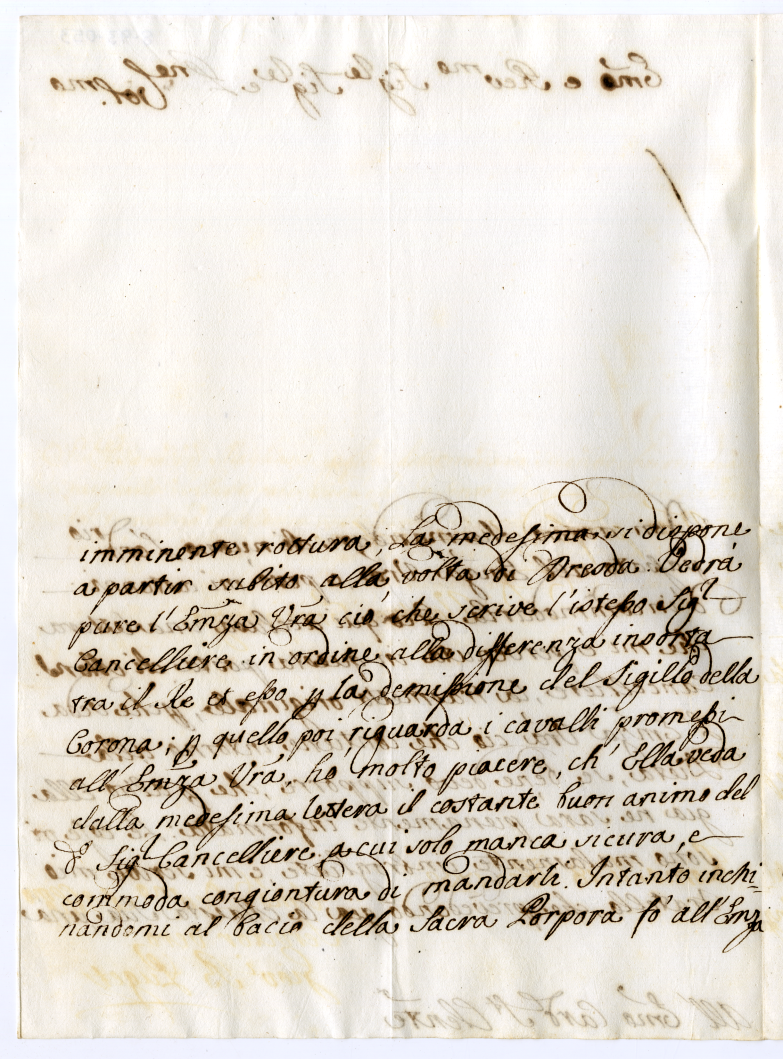 imminente rottura; La medesima si dispone
a partir subito alla volta di Breda. Vedrà
pure l'Emza Vra ciò, che scrive l'istesso Sigr
Cancelliere in ordine alla differenza insorta
tra il Re et esso p la demissione del Sigillo della
Corona; p quello poi riguarda i cavalli promessi
all'Emza Vra, hò molto piacere, ch'Ella veda
dalla medesima lettera il costante buon animo del
do Sigr Cancelliere a cui solo manca sicura, e
commoda congiontura di mandarli. Intanto inchi=
nandomi al bacio della Sacra Porpora fò all'Emza